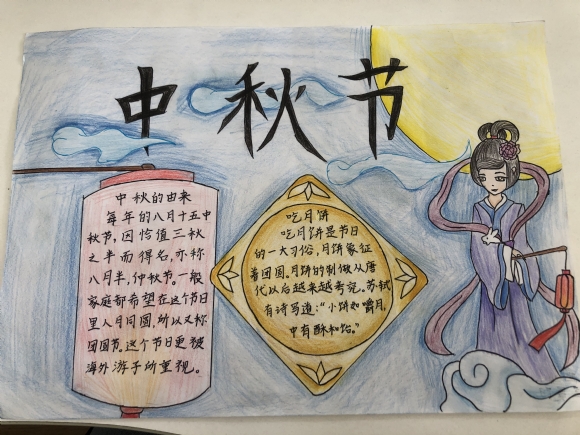 中秋节
中秋的由来
每年的八月十五中
秋节,因恰值三秋
之半而得名,亦称
八月半,仲秋节。一般
家庭都希望在这个节日
里人月同圆,所以又称
团圆节。这个节日更被
海外游子所重视。
吃月饼
吃月饼是节日
的一大习俗,月饼象征
着团圆。月饼的制做从唐
代以后越来越考究。苏轼
有诗写道:“小饼如嚼月,
中有酥和饴。”